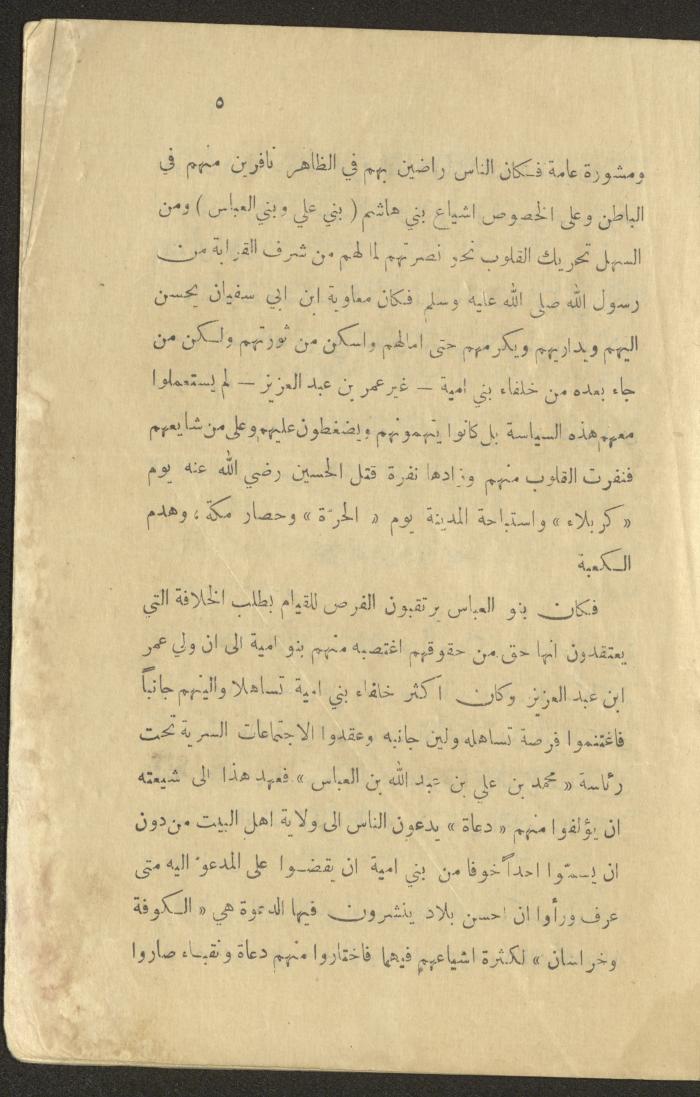 ٥
ومشورة عامة فكان الناس راضين بهم في الظاهر نافرين منهم في
الباطن وعلى الخصوص اشياع بني هاشم ( بني علي وبني العباس ) ومن
السهل تحريك القلوب نحو نصرتهم لما لهم من شرف القرابة من
رسول الله صلى الله عليه وسلم فكان معاوية ابن ابي سفيان يحسن
اليهم ويداريهم ويكرمهم حتى امالهم واسكن من ثورتهم ولكن من
جاء بعده من خلفاء بني امية — غير عمر بن عبد العزيز — لم يستعملوا
معهم هذه السياسة بل كانوا يتهمونهم ويضغطون عليهم وعلى من شايعهم
فنفرت القلوب منهم وزادها نفرة قتل الحسين رضي الله عنه يوم
« كربلاء » واستباحة المدينة يوم « الحرّة » وحصار مكة ، وهدم
الكعبة
فكان بنو العباس يرتقبون الفرص للقيام بطلب الخلافة التي
يعتقدون انها حق من حقوقهم اغتصبه منهم بنو امية الى ان ولي عمر
ابن عبد العزيز وكان اكثر خلفاء بني امية تساهلا والينهم جانباً
فاغتنموا فرصة تساهله ولين جانبه وعقدوا الاجتماعات السرية تحت
رئاسة « محمد بن علي بن عبد الله بن العباس » فعهد هذا الى شيعته
ان يؤلفوا منهم « دعاة » يدعون الناس الى ولاية اهل البيت من دون
ان يسمّوا احداً خوفا من بني امية ان يقضوا على المدعو اليه متى
عرف ورأوا ان احسن بلاد ينشرون فيها الدعوة هي « الكوفة
وخراسان » لكثرة اشياعهم فيهما فاختاروا منهم دعاة ونقباء صاروا